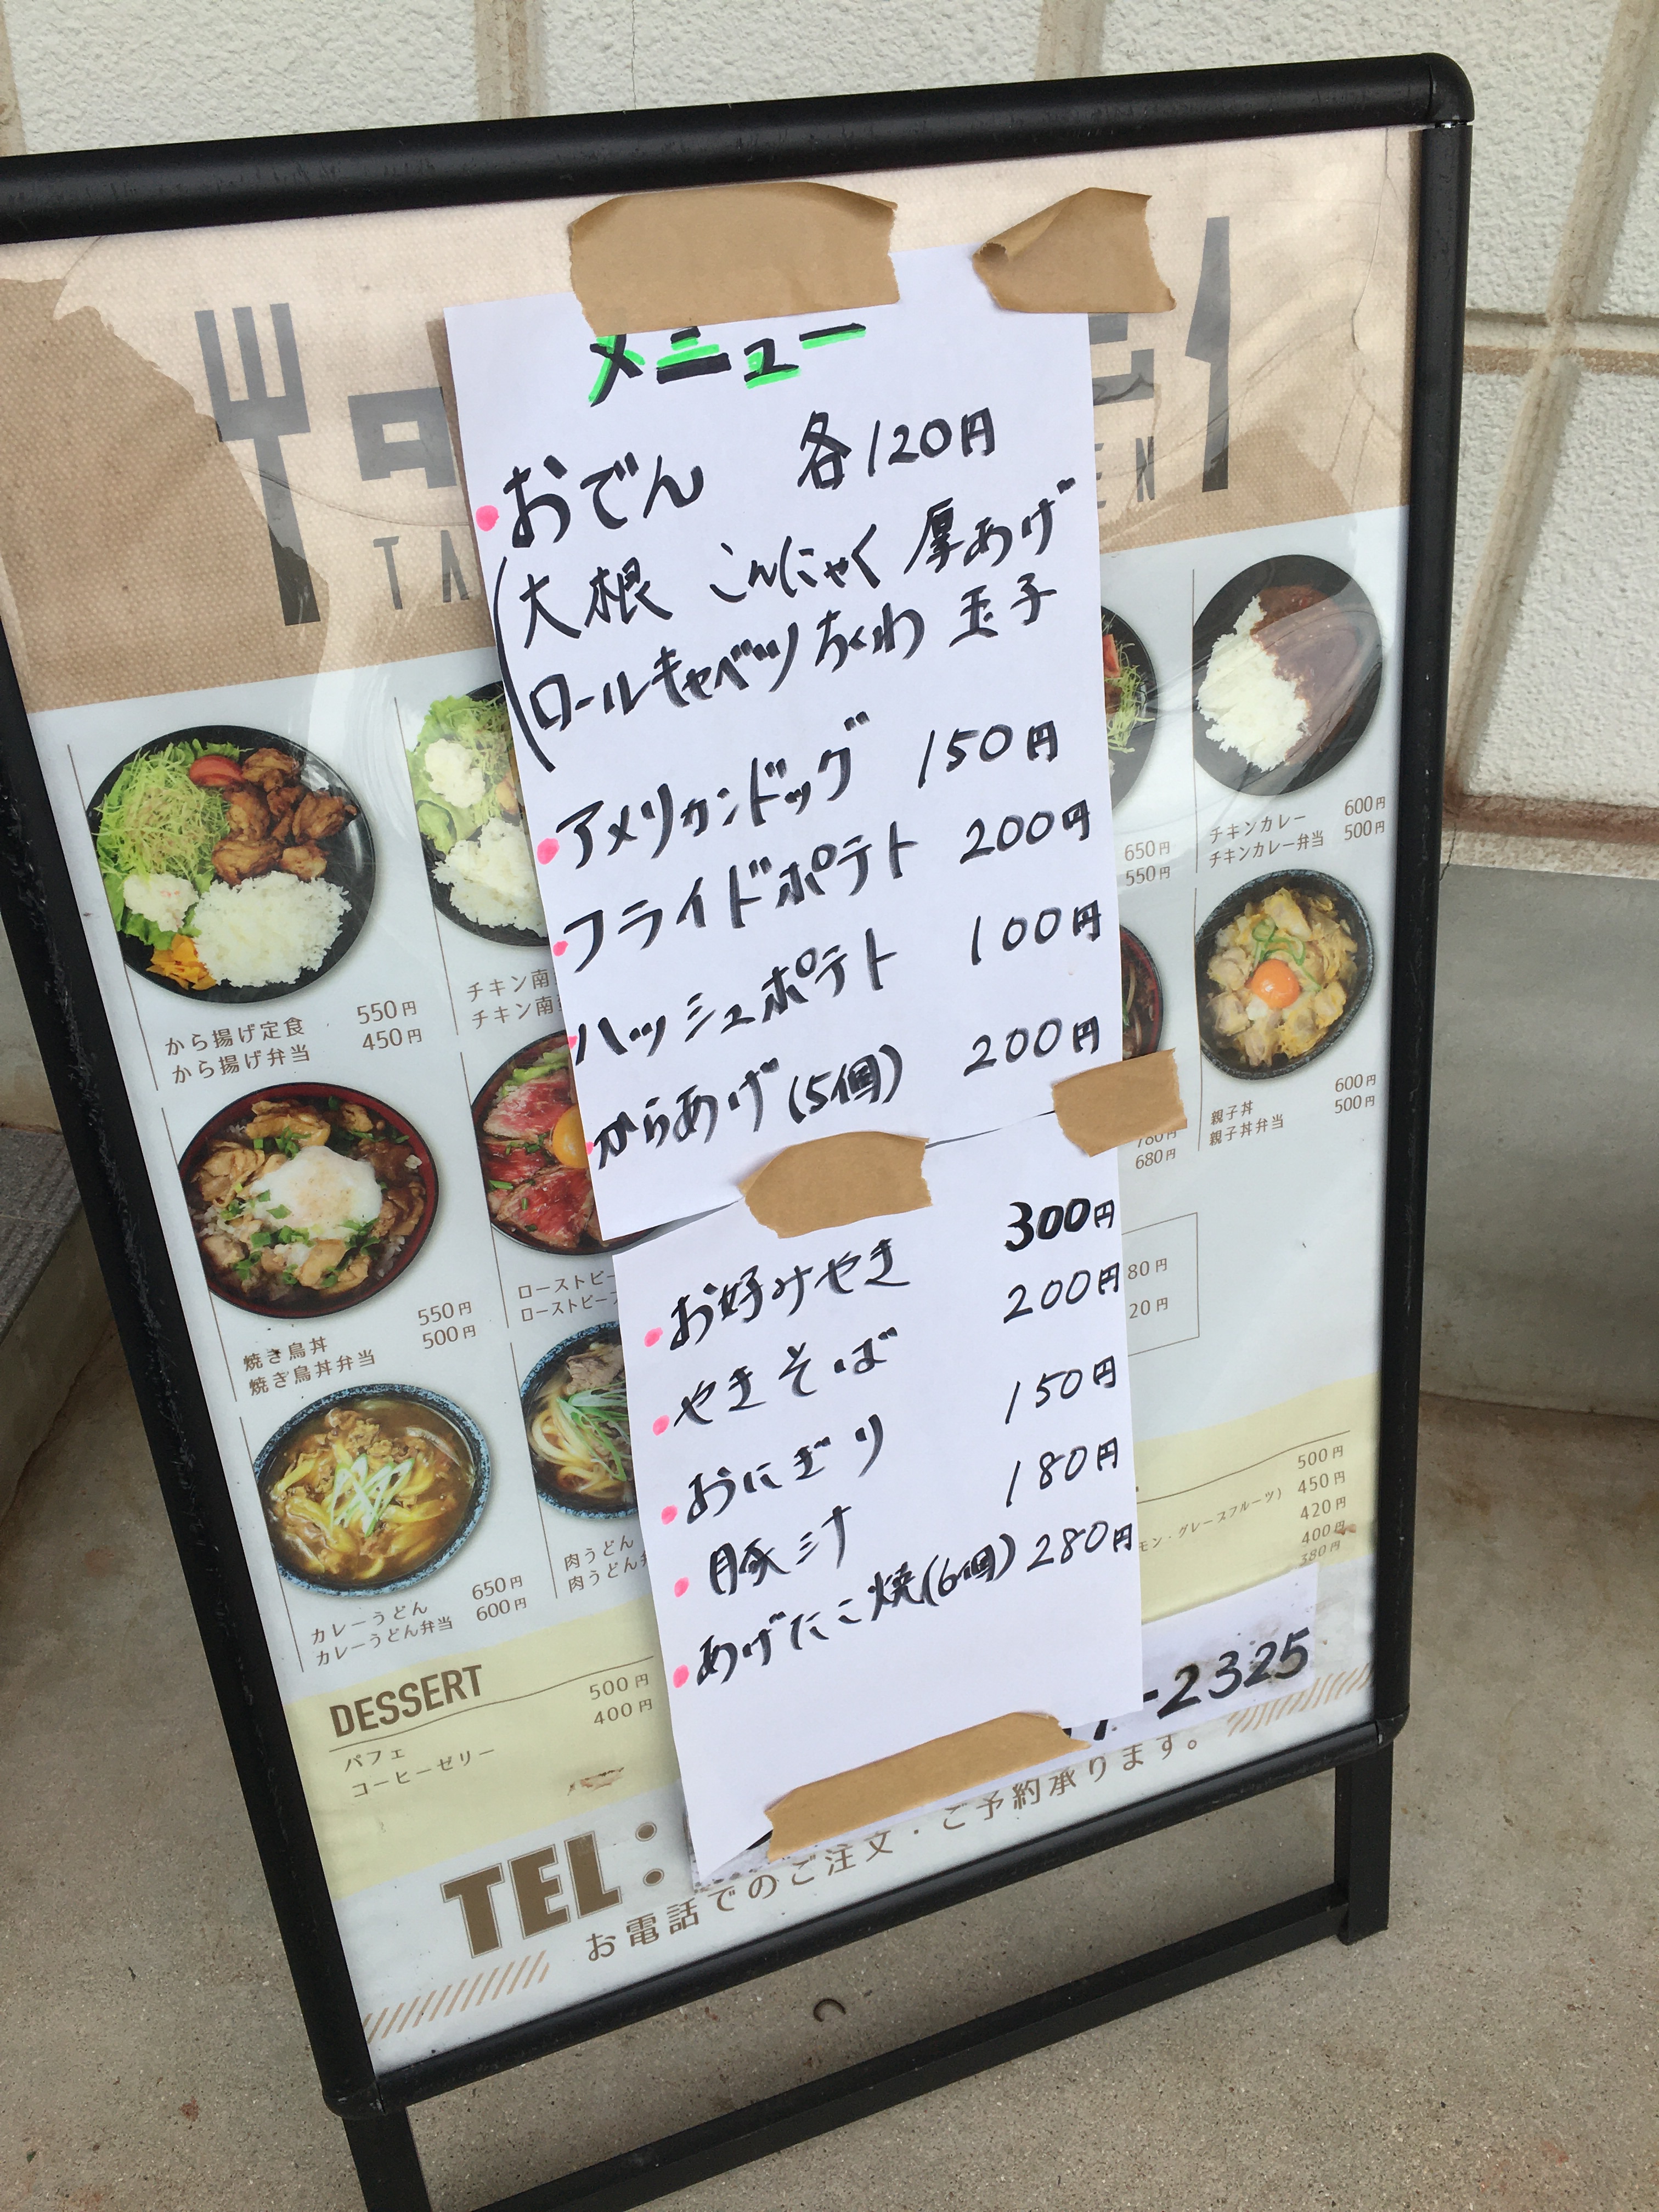 メニュー
・おでん 各120円
(大根 こんにゃく 厚あげ
ロールキャベツ ちくわ 玉子
・アメリカンドッグ 150円
・フライドポテト 200円
・ハッシュポテト 100円
・からあげ(5個) 200円
・お好みやき 300円
・やきそば 200円
・おにぎり 150円
・豚汁 180円
・あげたこ焼(6個) 280円
から揚げ定食 550円
から揚げ弁当 450円
チキン南
チキン南
650円
550円
チキンカレー 600円
チキンカレー弁当 500円
焼き鳥丼 550円
焼き鳥丼弁当 500円
ローストビー
ローストビーフ
780円
680円
親子丼 600円
親子丼弁当 500円
80円
20円
カレーうどん 650円
カレーうどん弁当 600円
肉うどん
肉うどん弁
DESSERT
パフェ 500円
コーヒーゼリー 400円
500円
モン・グレープフルーツ) 450円
420円
400円
380円
TEL:
-2325
お電話でのご注文・ご予約承ります。